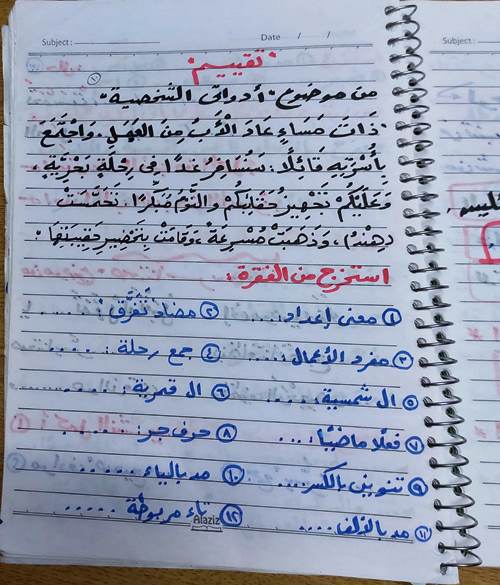 Subject:
Date / /
Subject:
"تقييم"
من موضوع "أدواتى الشخصية"
"ذَاتَ مَسَاءٍ عَادَ الْأَبُ مِنَ العَمَلِ، وَاجْتَمَعَ
بِأُسْرَتِهِ قَائِلًا: سَنُسَافِرُ غَدًا فِى رِحْلَةٍ بَحْرِيَّةٍ،
وَعَلَيْكُمْ تَجْهِيزُ حَقَائِبِكُمْ وَالنَّوْمُ مُبَكِّرًا. تَحَمَّسَتْ
(هِنْدُ)، وَذَهَبَتْ مُسْرِعَةً، وَقَامَتْ بِتَحْضِيرِ حَقِيبَتِهَا".
استخرج من الفقرة:
١ معنى إعداد..... ٢ مضاد تَفَرَّقَ: ......
٣ مفرد الأعمال: ..... ٤ جمع رحلة: .....
٥ ال شمسية: ..... ٦ ال قمرية: ..........
٧ فعلًا ماضيًا: ... ٨ حرف جر: ......
٩ تنوين بالكسر.... ١٠ مد بالياء .....
١١ مد بالألف .... ١٢ تاء مربوطة .....
Alaziz